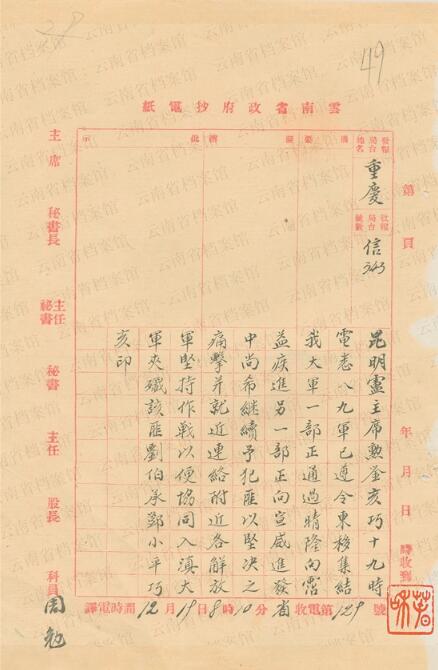 49
雲南省政府抄電紙
第 頁 年 月 日 譯收到
發報局台地名 重慶 收報局台號數 信 343
摘要 擬辦 批示
昆明盧主席勳鑒亥巧十九時
電悉八九軍已遵令東移集結
我大軍一部正通過晴隆向霑
益疾進另一部正向宣威進發
中尚希繼續予犯匪以堅決之
痛擊并就近連絡附近各解放
軍堅持作戰以便協同入滇大
軍夾殲該匪劉伯承鄧小平巧
亥印
譯電時間12月19日8時10分 省收電第129號
主席 秘書長 主任秘書 秘書 主任 股長 科員 周勉
云南省档案馆